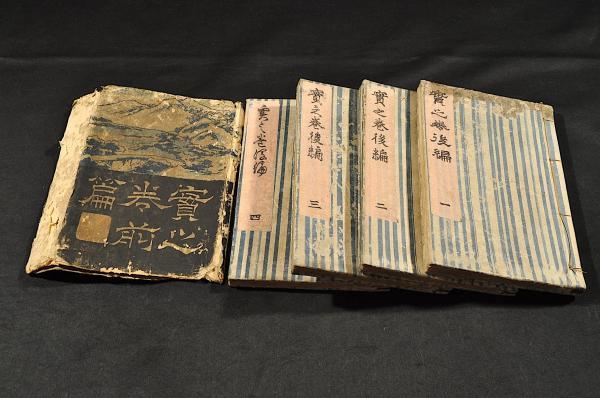 實之巻後編
一
實之巻後編
二
實之巻後編
三
実之巻後編
四
實之
巻前
篇